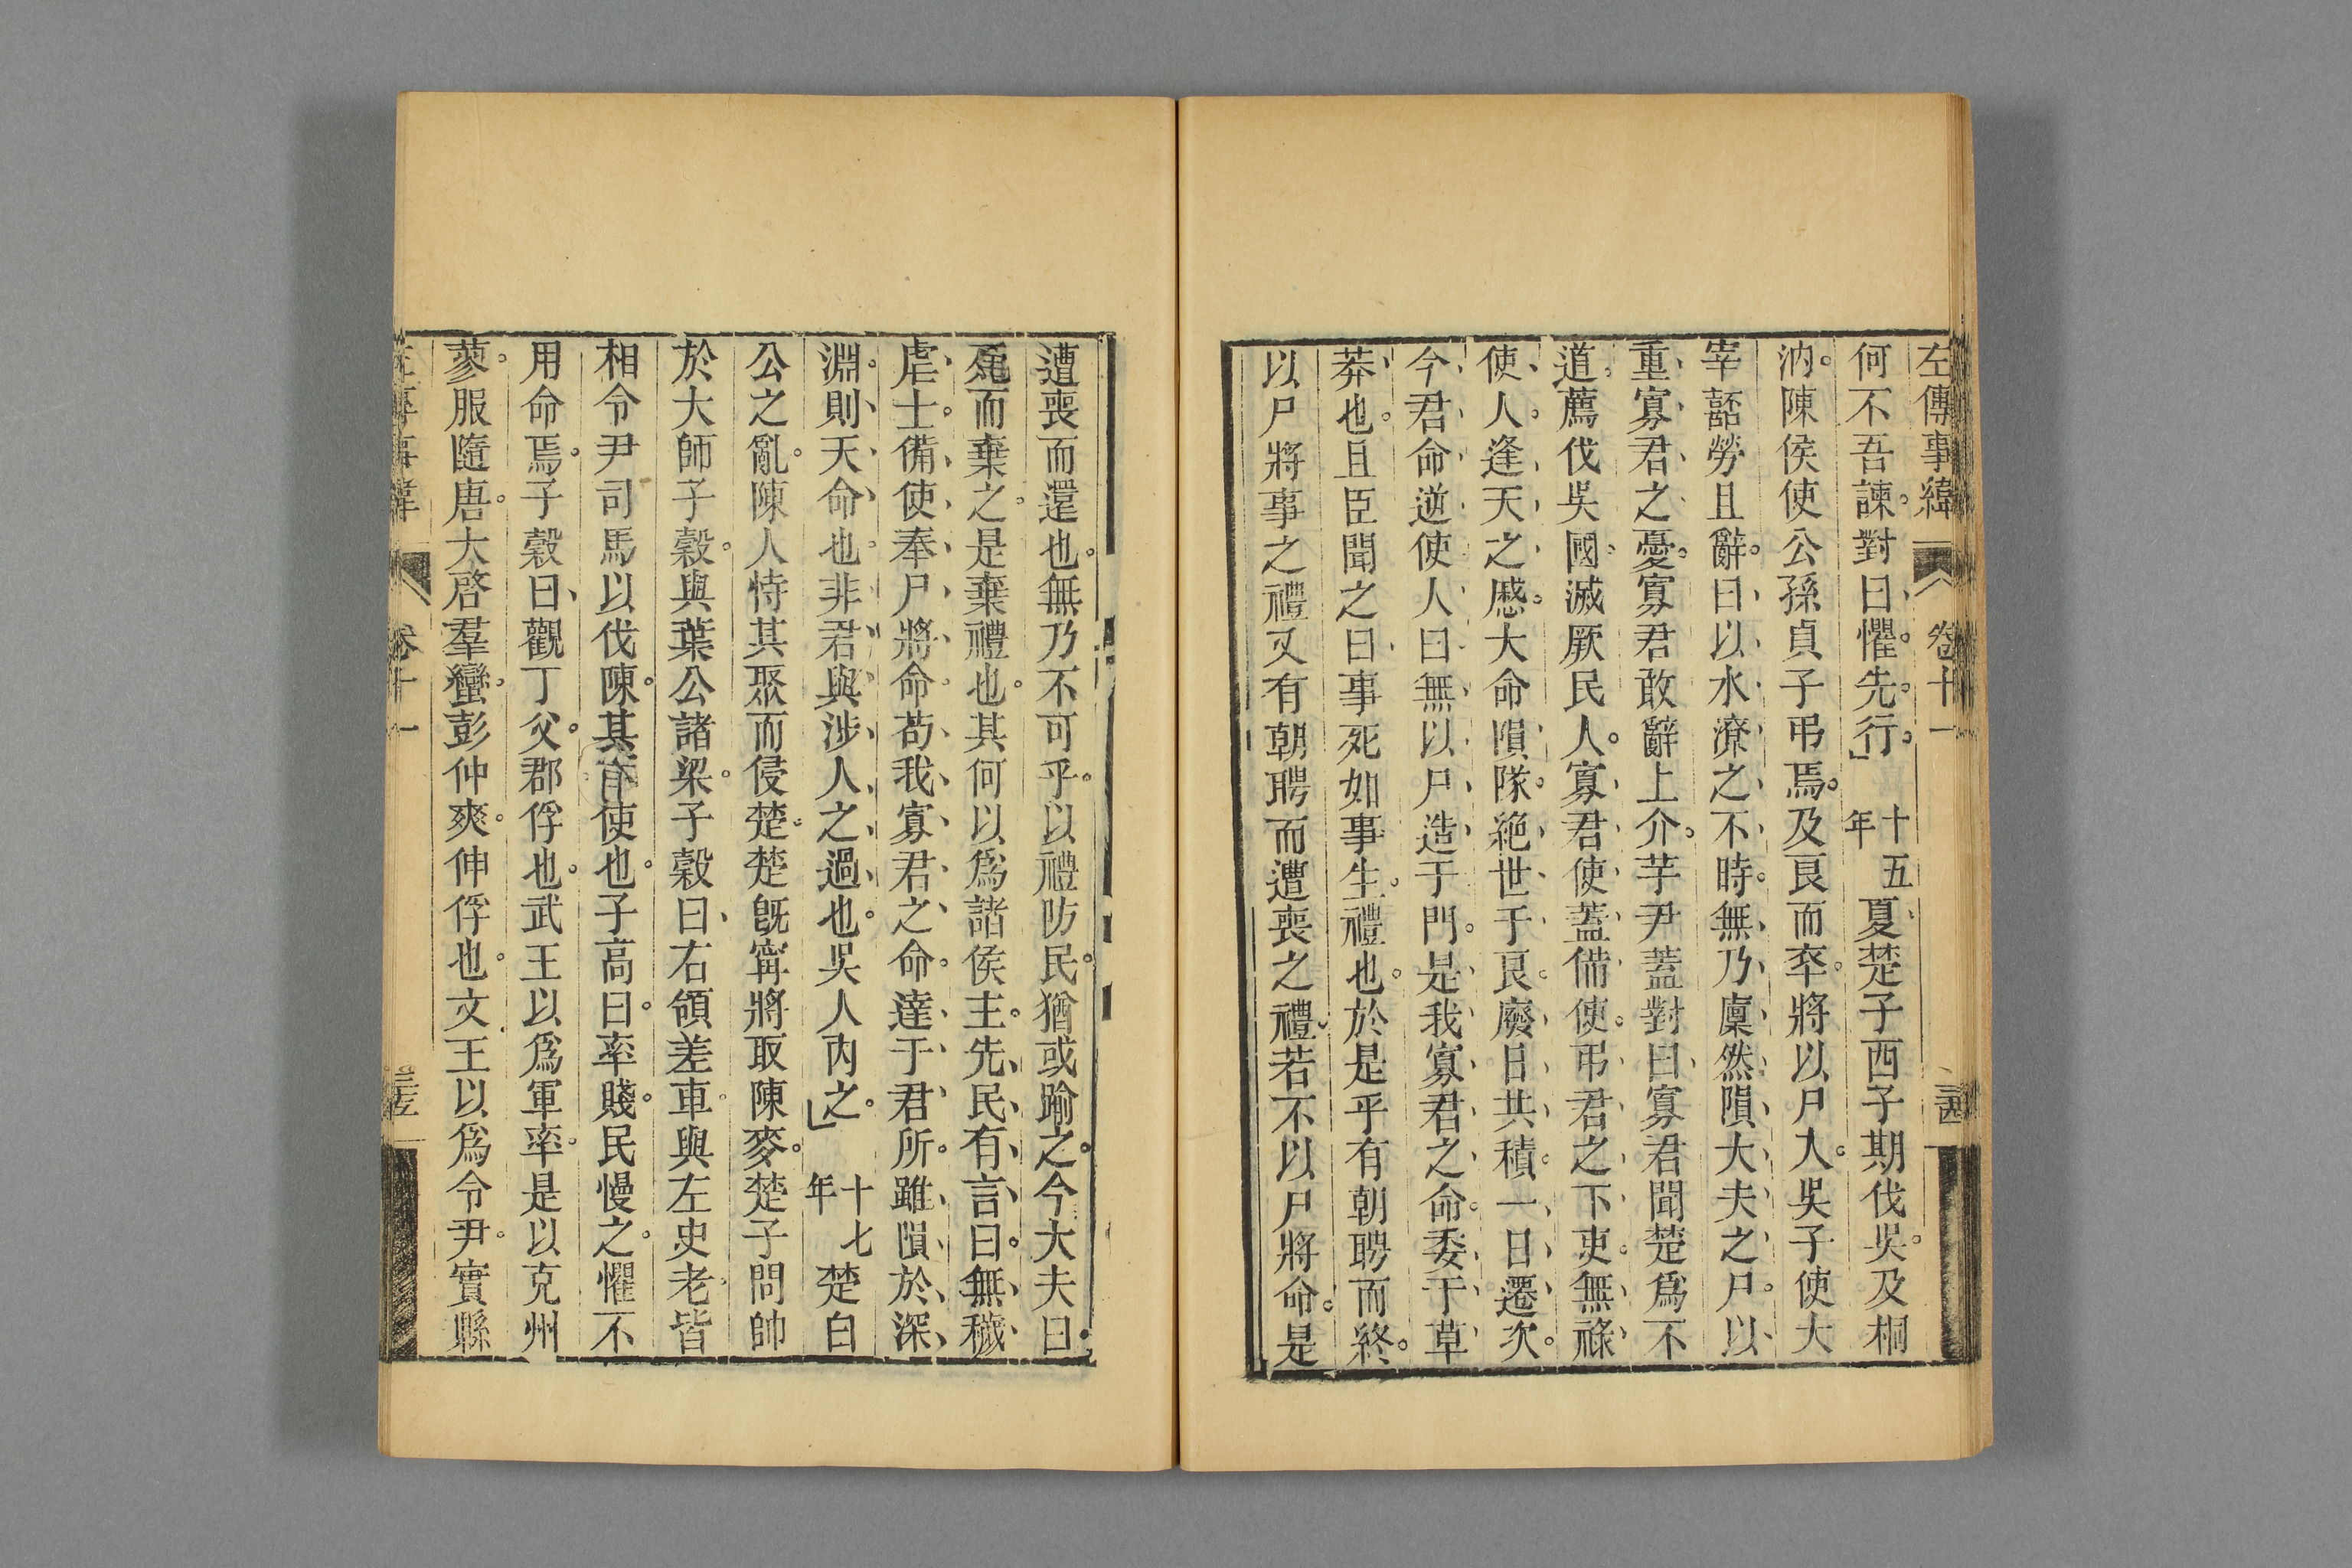 左傳事緯 卷十一
何不吾諫對曰懼先行 十五年 夏楚子西子期伐吳及桐
汭陳侯使公孫貞子弔焉及良而卒將以尸入吳子使大
宰嚭勞且辭曰以水潦之不時無乃廩然隕大夫之尸以
重寡君之憂寡君敢辭上介芋尹蓋對曰寡君聞楚爲不
道薦伐吳國滅厥民人寡君使蓋備使弔君之下吏無祿
使人逢天之慼大命隕隊絶世于良廢日共積一日遷次
今君命逆使人曰無以尸造于門是我寡君之命委于草
莽也且臣聞之曰事死如事生禮也於是乎有朝聘而終
以尸將事之禮又有朝聘而遭喪之禮若不以尸將命是
遭喪而還也無乃不可乎以禮防民猶或踰之今大夫曰
死而棄之是棄禮也其何以爲諸侯主先民有言曰無穢
虐士備使奉尸將命苟我寡君之命達于君所雖隕於深
淵則天命也非君與涉人之過也吳人內之 十七年 楚白
公之亂陳人恃其聚而侵楚楚旣寗將取陳麥楚子問帥
於大師子穀與葉公諸梁子穀曰右領差車與左史老皆
相令尹司馬以伐陳其可使也子高曰率賤民慢之懼不
用命焉子穀曰觀丁父鄀俘也武王以爲軍率是以克州
蓼服隨唐大啓羣蠻彭仲爽伸俘也文王以爲令尹實縣
卷十一